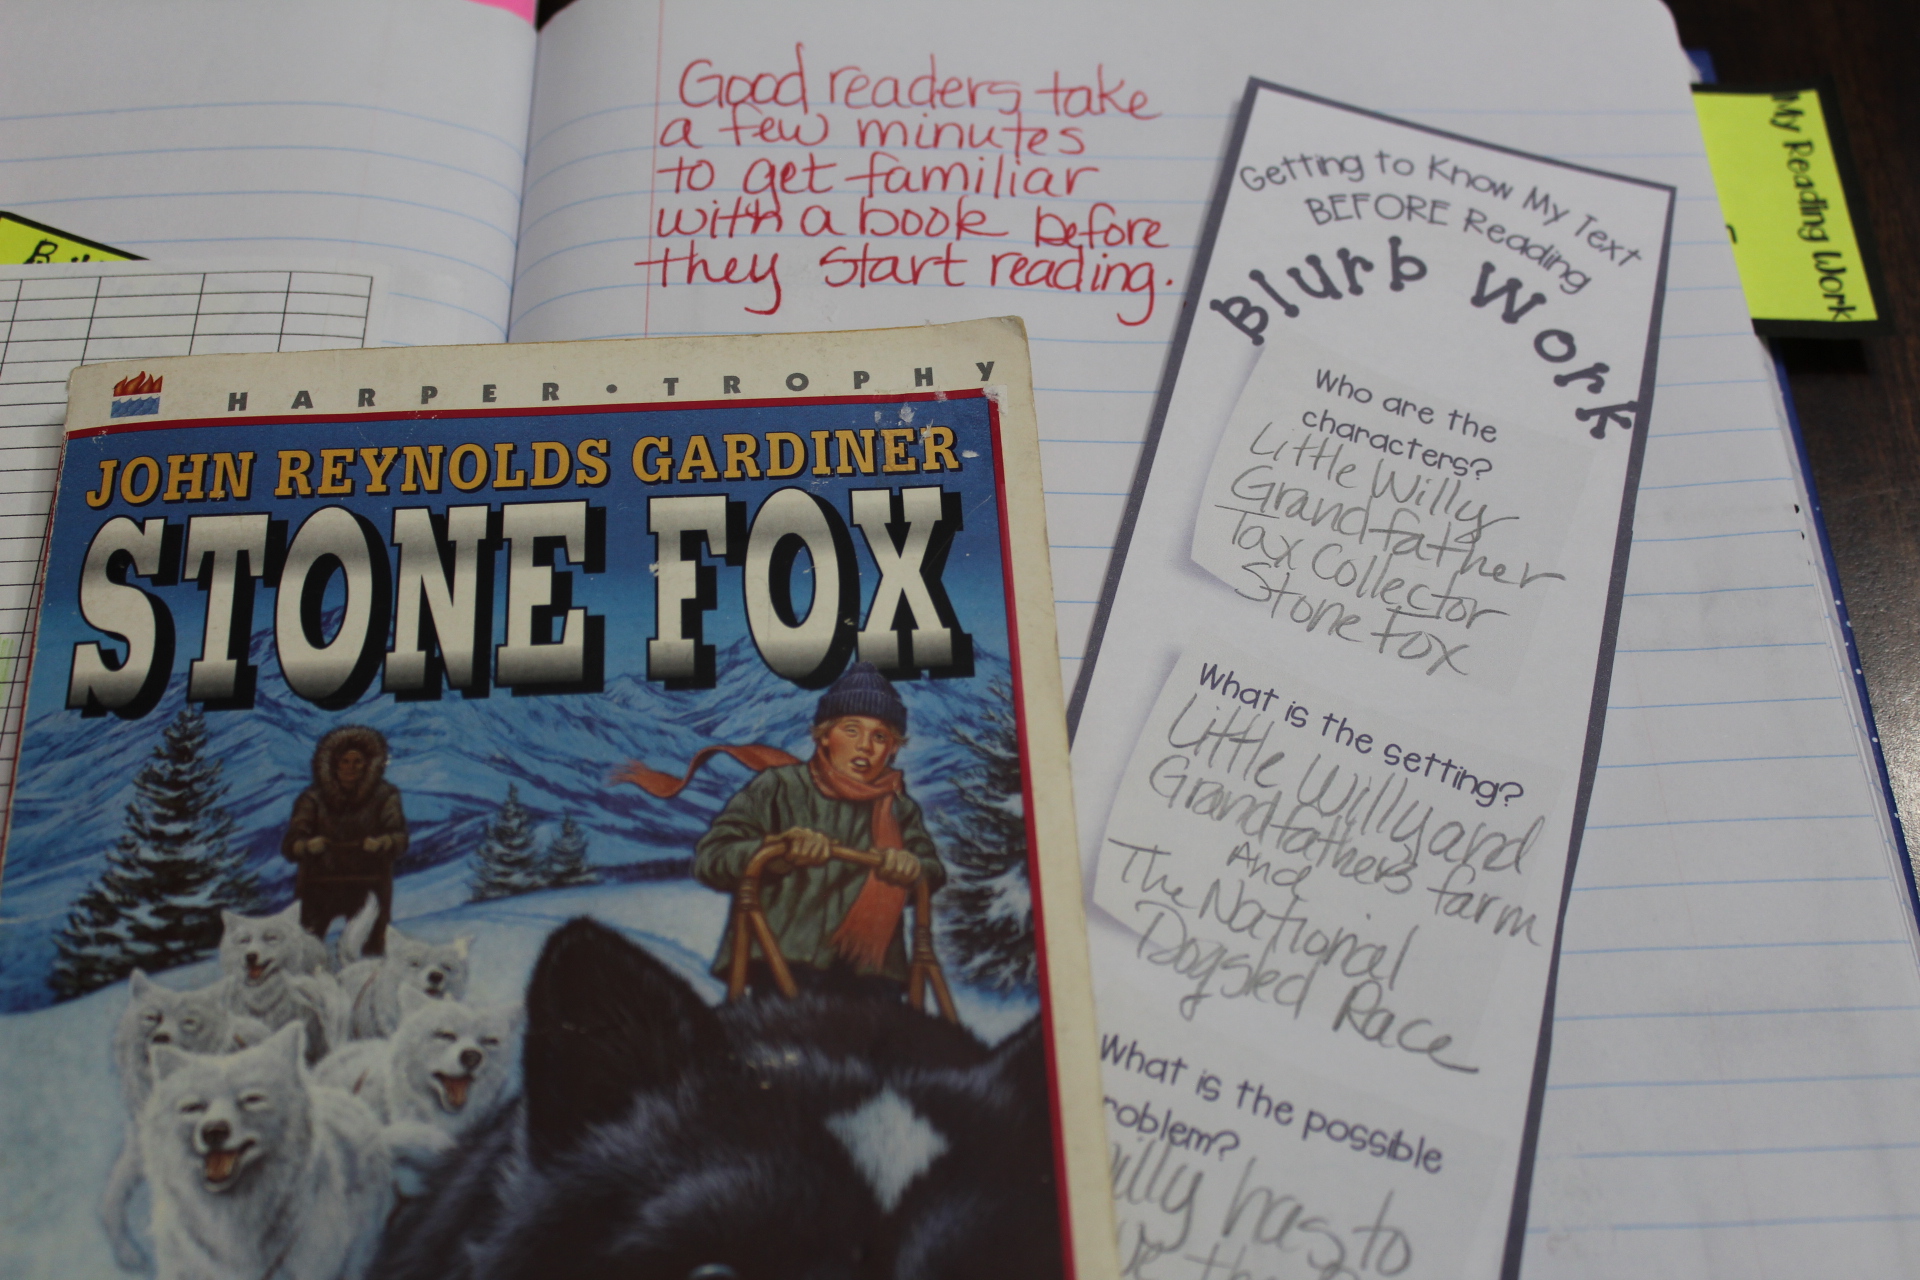 Good readers take
a few minutes
to get familiar
with a book before
they start reading.
My Reading Work
Getting to Know My Text
BEFORE Reading
Blurb Work
Who are the
characters?
Little Willy
Grandfather
Tax Collector
Stone Fox
What is the setting?
Little Willy and
Grandfathers farm
And
The National
Dogsled Race
What is the possible
roblem?
illy has to
HARPER • TROPHY
JOHN REYNOLDS GARDINER
STONE FOX